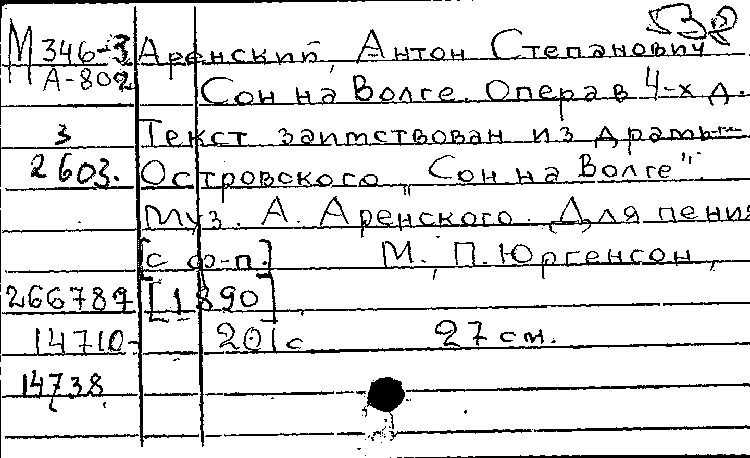 532
М 346-3 Аренский, Антон Степанович
А-802 Сон на Волге. Опера в 4-х д.
3 Текст заимствован из драмы
2603. Островского „Сон на Волге".
Муз. А. Аренского. Для пения
[с ф-п.] М., П. Юргенсон,
266789 [1890]
14710- 201 с 27 см.
14738